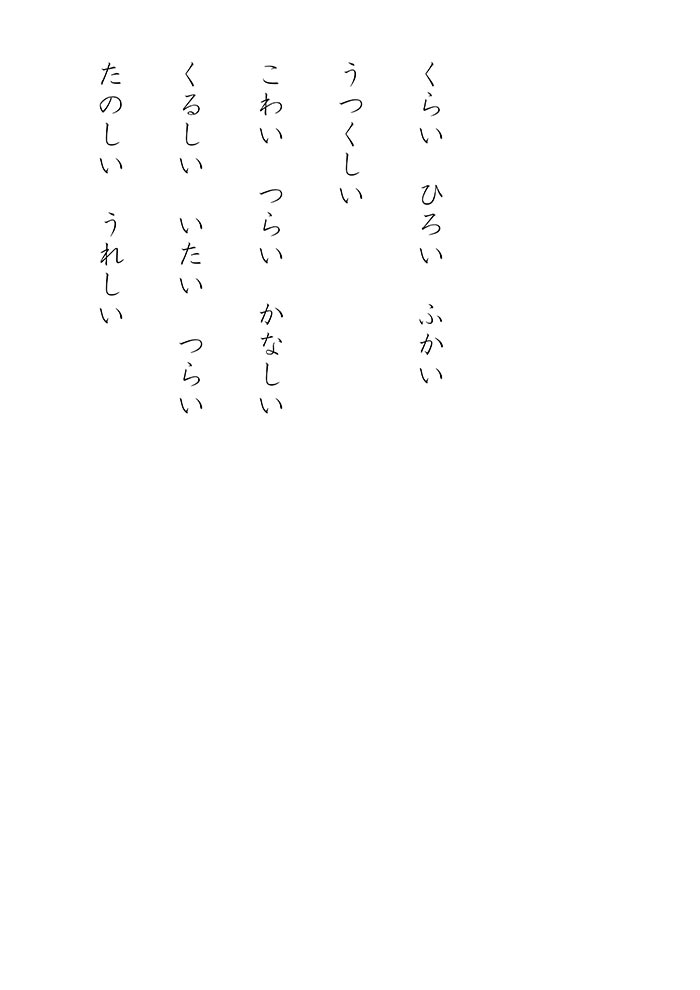 くらい　ひろい　ふかい
うつくしい
こわい　つらい　かなしい
くるしい　いたい　つらい
たのしい　うれしい